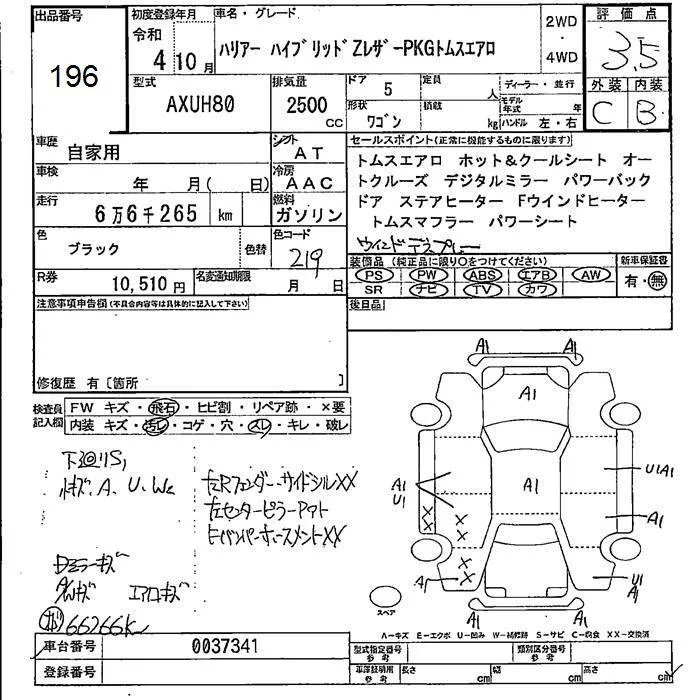 出品番号
196
初度登録年月
令和
4 10月
車名・グレード
ハリアー ハイブリッドZレザーPKGトムスエアロ
2WD
・
4WD
評価点
3.5
外装 内装
C B
型式
AXUH80
排気量
2500
CC
ドア 5
定員
人
形状
ワゴン
積載
kg
ディーラー・並行
モデル年式 年
ハンドル 左・右
車歴
自家用
シフト
AT
車検
年 月( 日)
冷房
AAC
走行
6万6千265 km
燃料
ガソリン
色
ブラック
色替
色コード
219
R券
10,510円
名変通知期限
月 日
セールスポイント(正常に機能するものに限ります)
トムスエアロ ホット&クールシート オー
トクルーズ デジタルミラー パワーバック
ドア ステアヒーター Fウインドヒーター
トムスマフラー パワーシート
装備品 (純正品に限り○をつけてください)
PS PW ABS エアB AW
SR ナビ TV カワ
新車保証書
有・無
後日品
注意事項申告欄(不具合内容等は具体的に記入して下さい)
修復歴 有〔箇所 〕
検査員記入欄
FW キズ・飛石・ヒビ割・リペア跡・×要
内装 キズ・汚レ・コゲ・穴・スレ・キレ・破レ
下廻リS1
小キズ、A、U、W2
左Rフェンダー・サイドシルXX
左センターピラーアウト
Dミラーキズ
AWキズ エアロキズ
66266K
A1 A1
A1
A1
U1
A1
U1A1
A1
XX
XX
A1
U1
A1
A1 A1
スペア
A-キズ E-エクボ U-凹み W-補修跡 S-サビ C-腐食 XX-交換済
車台番号
0037341
型式指定番号
参考
類別区分番号
参考
登録番号
車庫証明用
参考
長さ cm
幅 cm
高さ cm